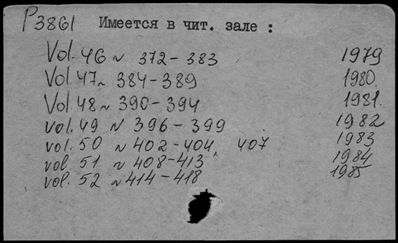 P3861 Имеется в чит. зале :
Vol. 46 N 372-383 1979
Vol. 47 N 384-389 1980
Vol. 48 N 390-394 1981.
vol. 49 N 396-399 1982
vol. 50 N 402-404, 407 1983
vol. 51 N 408-413 1984
vol. 52 N 414-418 1985